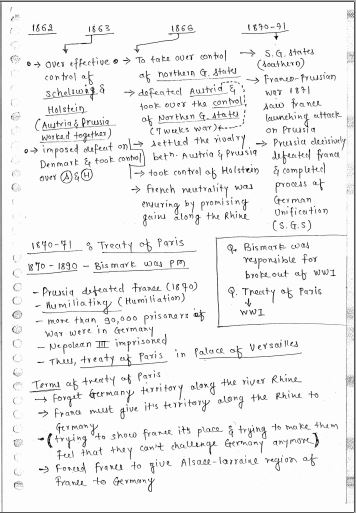 1862 1863
→ Over effective
control of
Schelswig &
Holstein
(Austria & Prussia
worked together)
→ imposed defeat on
Denmark & took control
over (S) & (H)
1866
→ To take over control
of northern G. states
→ defeated Austria &
took over the control
of Northern G. states
(7 weeks war)
→ settled the rivalry
beth. Austria & Prussia
→ took control of Holstein
→ French neutrality was
ensuring by promising
gains along the Rhine
1870-71
→ S.G. states
(southern)
→ Franco-Prussian
war 1871
saw france
launching attack
on Prussia
→ Prussia decisively
defeated france
& completed
process of
German
Unification
(S.G.S)
1870-71 & Treaty of Paris
1870 - 1890 - Bismark was PM
- Prussia defeated france (1870)
- Humiliating (Humiliation)
- more than 90,000 prisoners of
war were in Germany
- Nepolean III imprisoned
- Thus, treaty of Paris in Palace of Versailles
Q. Bismark was
responsible for
broke out of WWI
Q. Treaty of Paris
↓
WWI
Terms of treaty of Paris
→ Forget Germany territory along the river Rhine
→ France must give its territory along the Rhine to
Germany
- (trying to show france its place & trying to make them
feel that they can't challenge Germany anymore)
→ Forced france to give Alsace-lorraine region of
France to Germany